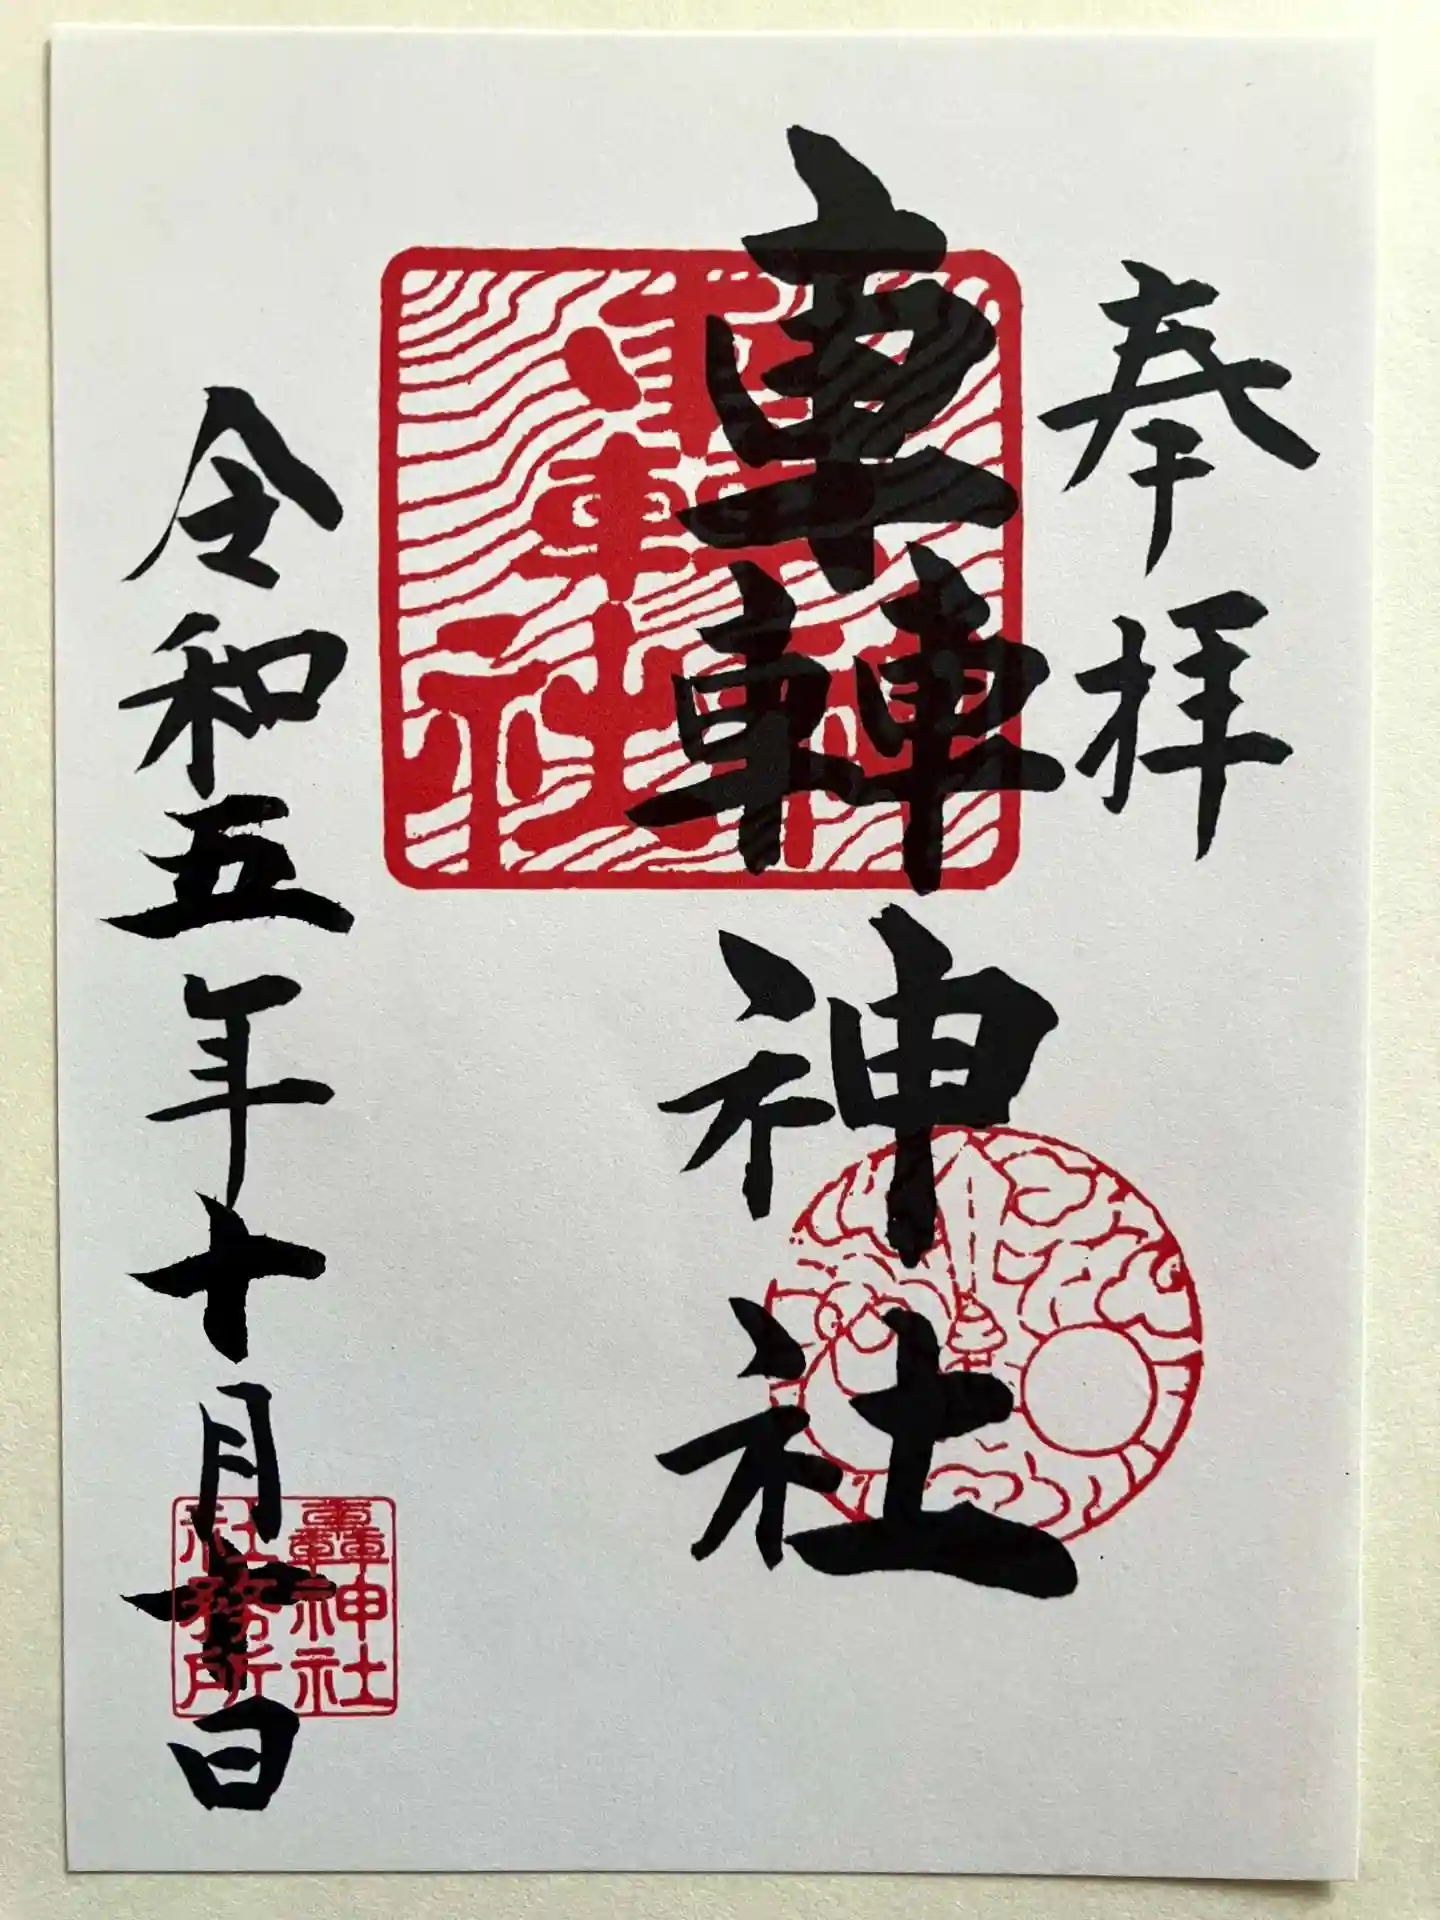 奉拝
轟神社
轟神社
令和五年十月十日
轟神社
社務所